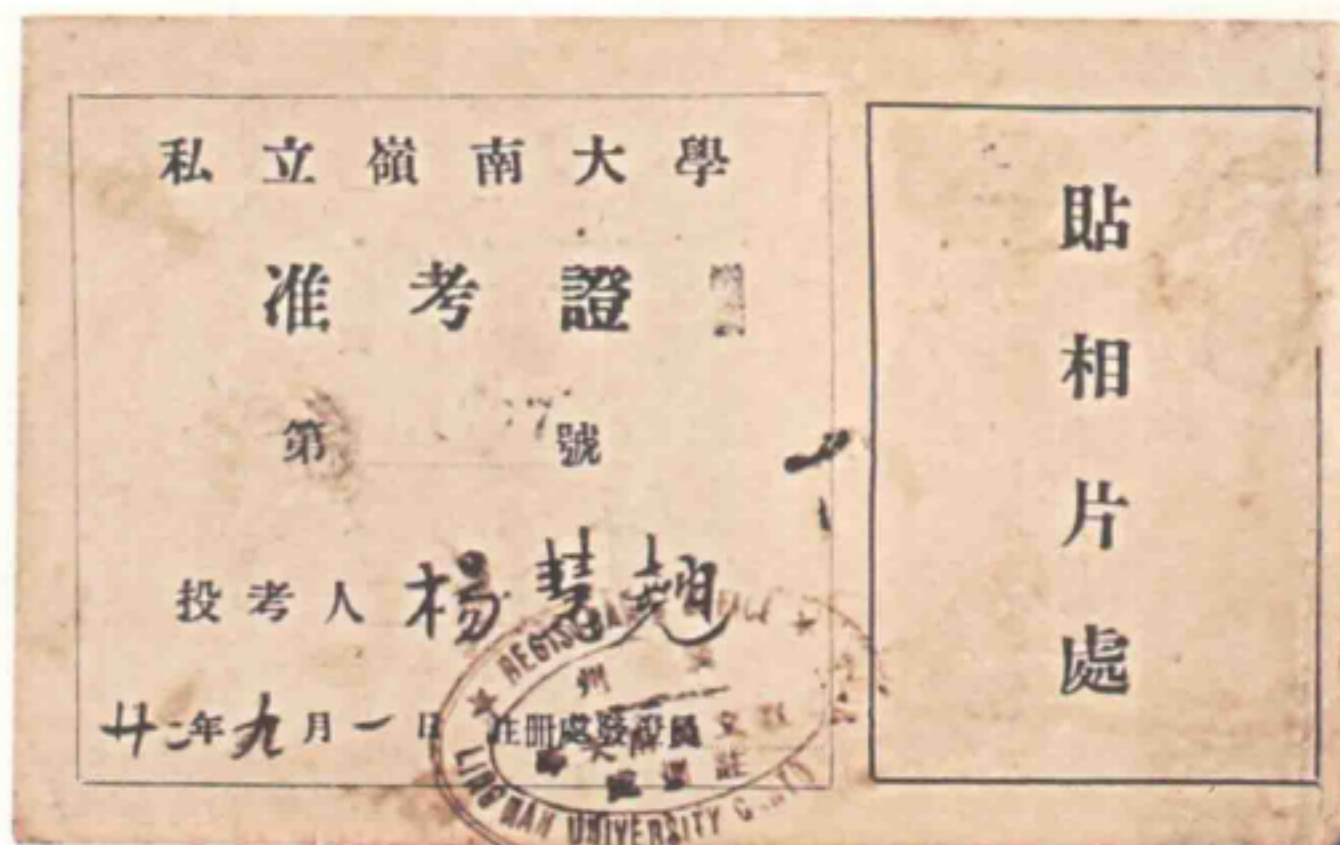 私立嶺南大學
准考證
第 號
投考人 楊慧趙
廿二年九月一日 註冊處發證員
REGISTRAR'S OFFICE
LINGNAN UNIVERSITY
貼相片處